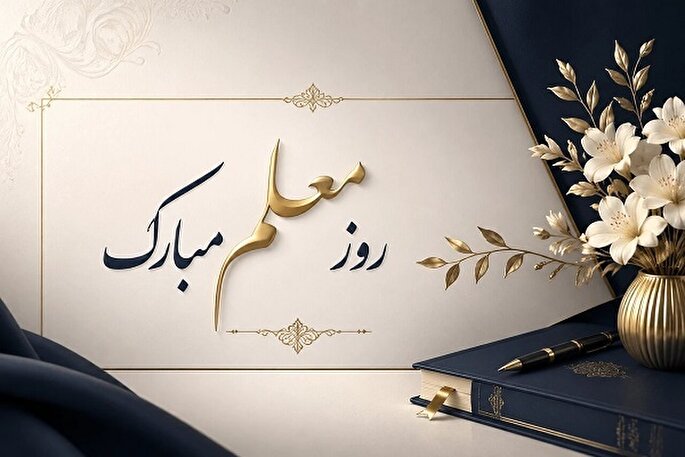 روز معلم مبارک